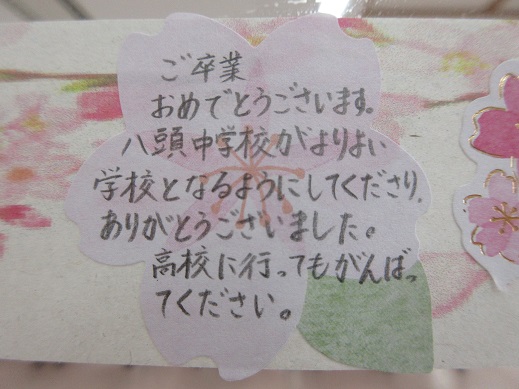 ご卒業
おめでとうございます。
八頭中学校がよりよい
学校となるようにしてくださり、
ありがとうございました。
高校に行ってもがんばっ
てください。